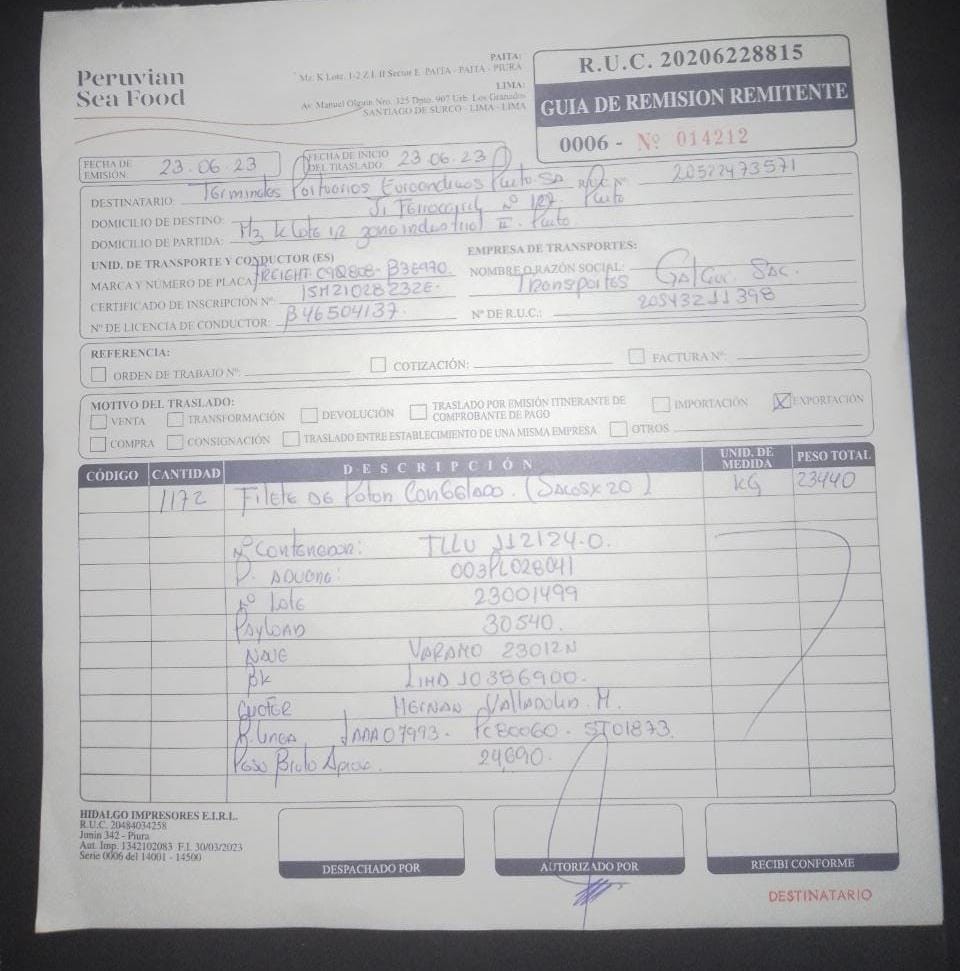 Peruvian
Sea Food
PAITA:
Mz. K Lote. 1-2 Z.I. II Sector E PAITA - PAITA - PIURA
LIMA:
Av. Manuel Olguin Nro. 325 Dpto. 907 Urb. Los Granados
SANTIAGO DE SURCO - LIMA - LIMA
R.U.C. 20206228815
GUIA DE REMISION REMITENTE
0006 - Nº 014212
FECHA DE EMISIÓN: 23.06.23
FECHA DE INICIO DEL TRASLADO: 23.06.23
DESTINATARIO: Terminales Portuarios Euroandinos Paita SA RUC Nº 20522473571
DOMICILIO DE DESTINO: Jr Ferrocarril Nº 127. Paita
DOMICILIO DE PARTIDA: Mz K Lote 1,2 zona industrial II. Paita
UNID. DE TRANSPORTE Y CONDUCTOR (ES)
MARCA Y NÚMERO DE PLACA: FREIGHT. C9Q808- B3E970.
CERTIFICADO DE INSCRIPCIÓN Nº: 15M21028232E.
Nº DE LICENCIA DE CONDUCTOR: B46504137.
EMPRESA DE TRANSPORTES:
NOMBRE O RAZÓN SOCIAL: Transportes SAC.
Nº DE R.U.C.: 20543211398
REFERENCIA:
ORDEN DE TRABAJO Nº: COTIZACIÓN: FACTURA Nº:
MOTIVO DEL TRASLADO:
VENTA TRANSFORMACIÓN DEVOLUCIÓN TRASLADO POR EMISIÓN ITINERANTE DE COMPROBANTE DE PAGO IMPORTACIÓN EXPORTACIÓN
COMPRA CONSIGNACIÓN TRASLADO ENTRE ESTABLECIMIENTO DE UNA MISMA EMPRESA OTROS
CÓDIGO CANTIDAD DESCRIPCIÓN UNID. DE MEDIDA PESO TOTAL
1172 Filete de Poton Congelado. (Sacos x 20) KG 23440
Nº Contenedor: TLLU 112124-0.
P. Aduana: 003PL028041
Nº Lote 23001499
Payload 30540.
Nave VARAMO 23012N
BK LIMA 10386900.
Chofer HERNAN Valladolid. M.
P. Linea JAAA07993. PC80060. ST01873.
Peso Bruto Aprox. 24690.
HIDALGO IMPRESORES E.I.R.L.
R.U.C. 20484034258
Junin 342 - Piura
Aut. Imp. 1342102083 F.I. 30/03/2023
Serie 0006 del 14001 - 14500
DESPACHADO POR
AUTORIZADO POR
RECIBI CONFORME
DESTINATARIO